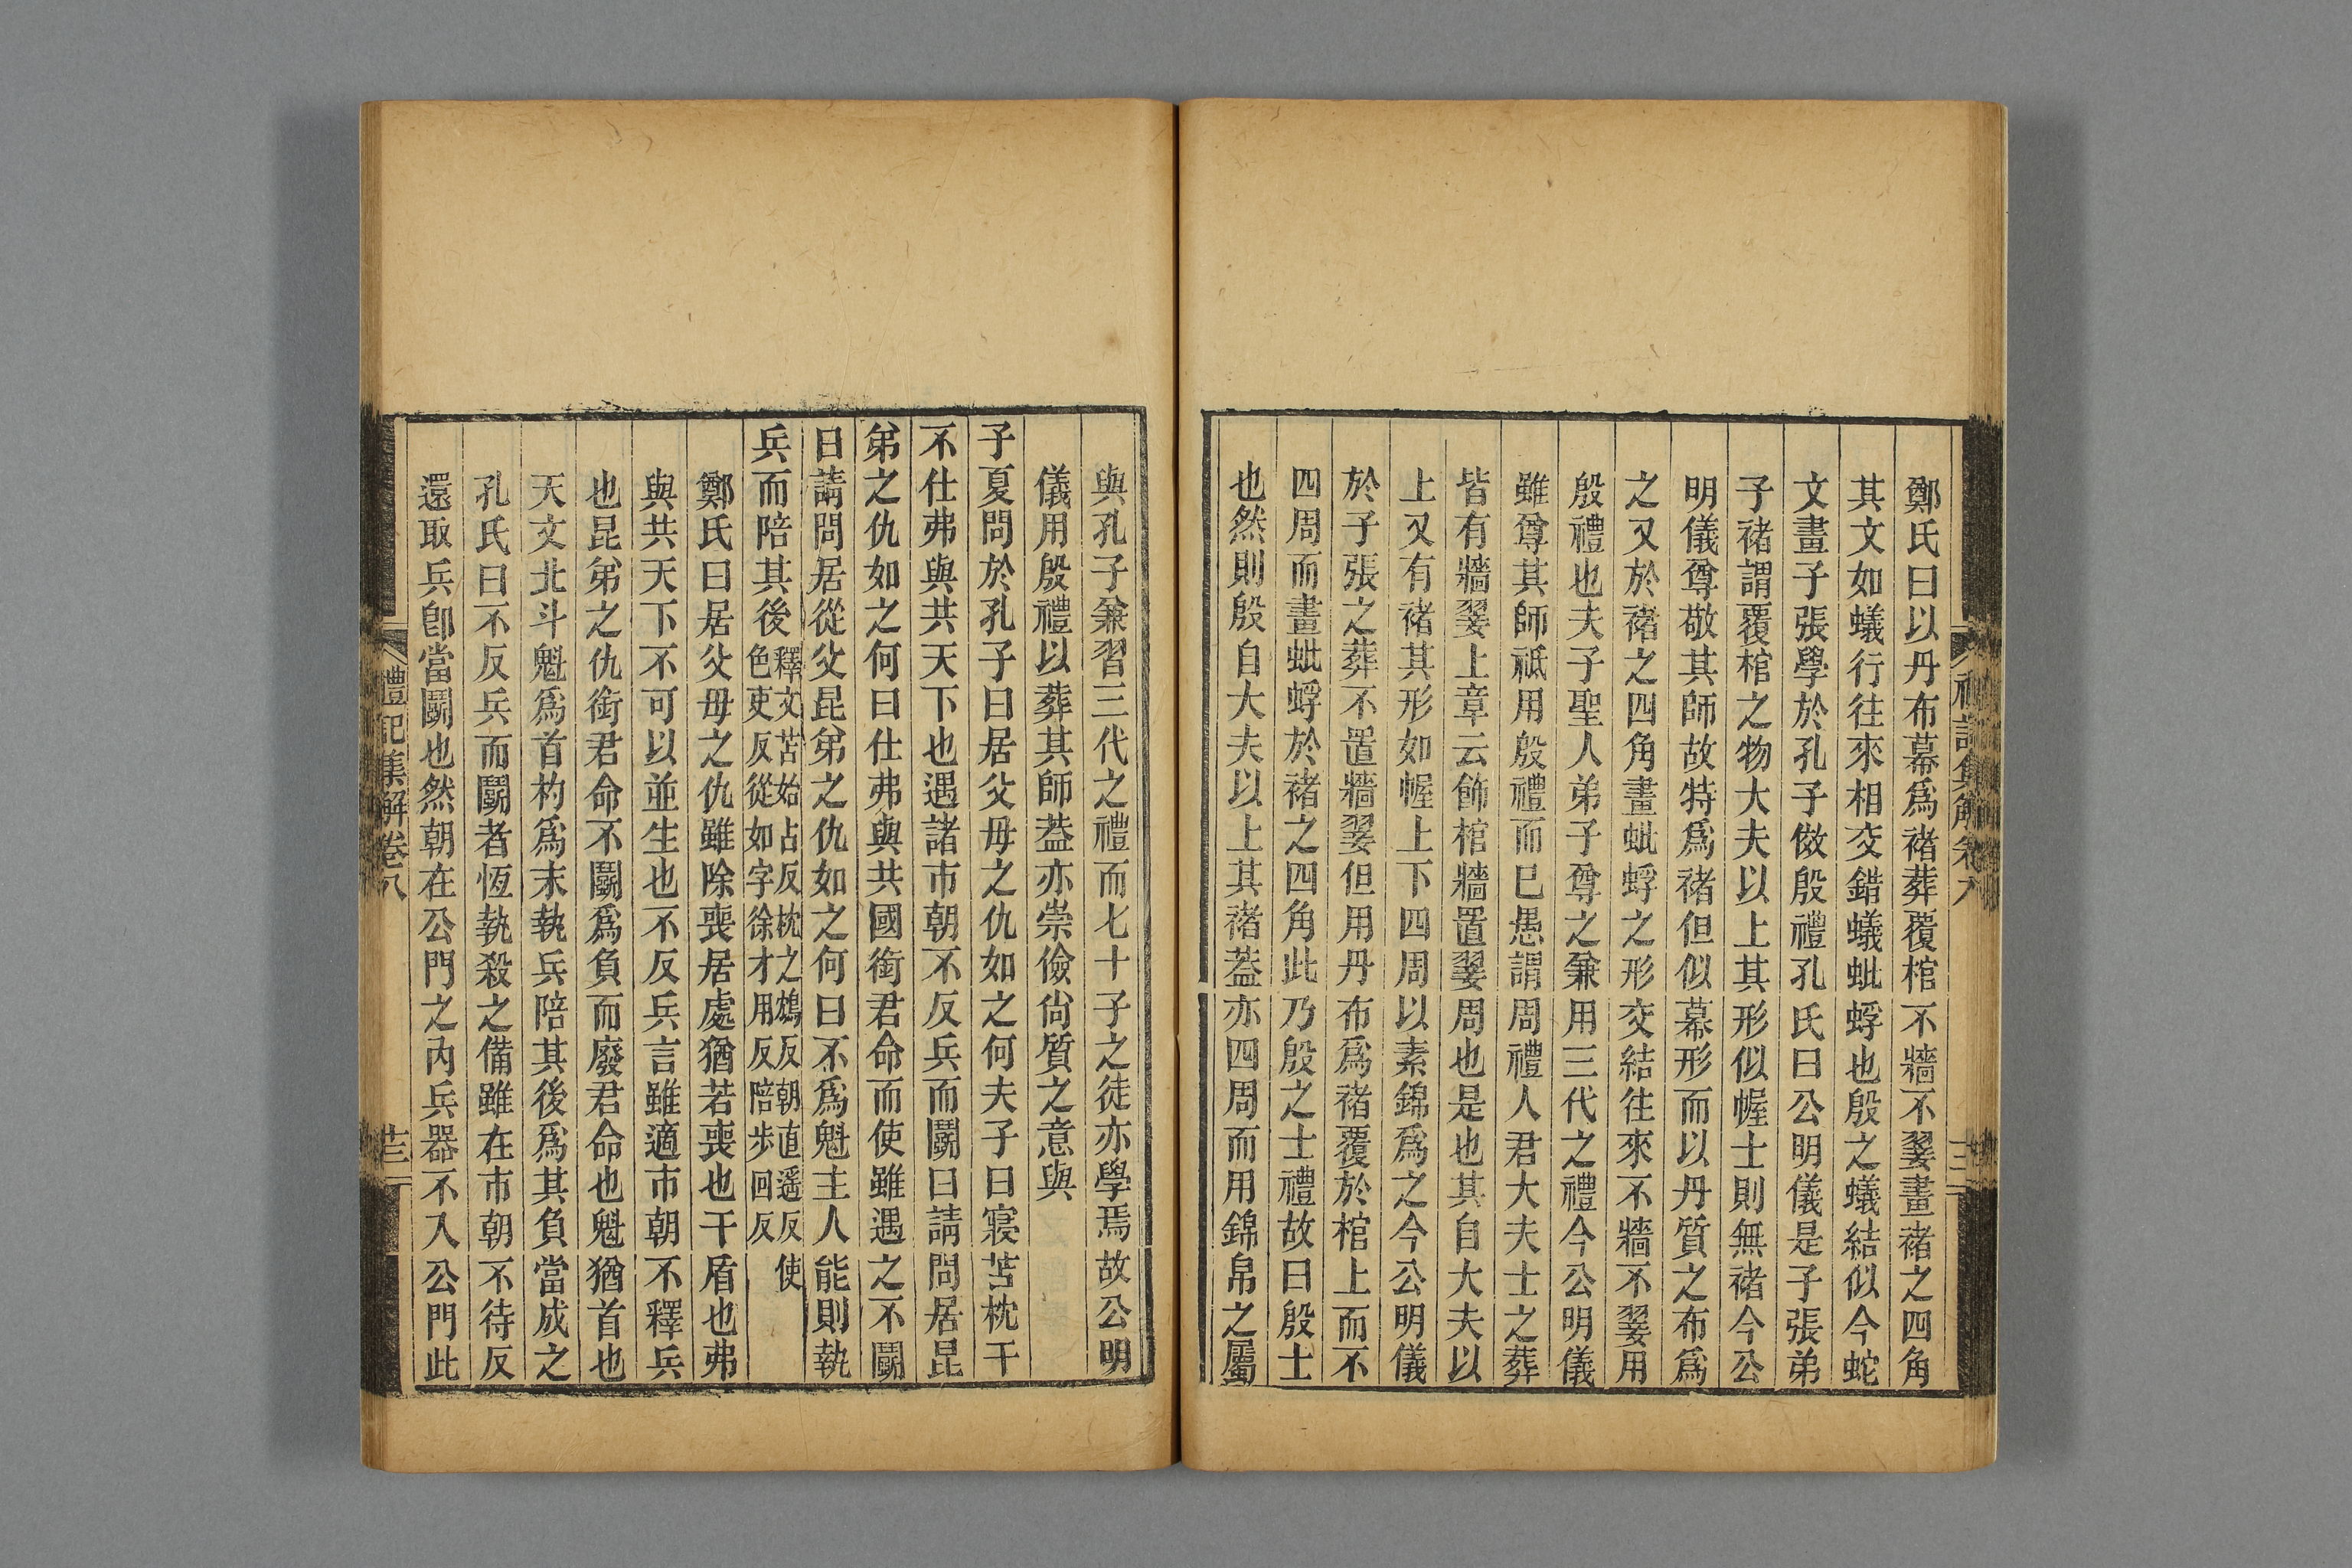 鄭氏曰以丹布幕爲褚葬覆棺不牆不翣畫褚之四角
其文如蟻行往來相交錯蟻蚍蜉也殷之蟻結似今蛇
文畫子張學於孔子倣殷禮孔氏曰公明儀是子張弟
子褚謂覆棺之物大夫以上其形似幄士則無褚今公
明儀尊敬其師故特爲褚但似幕形而以丹質之布爲
之又於褚之四角畫蚍蜉之形交結往來不牆不翣用
殷禮也夫子聖人弟子尊之兼用三代之禮今公明儀
雖尊其師祗用殷禮而已愚謂周禮人君大夫士之葬
皆有牆翣上章云飾棺牆置翣周也是也其自大夫以
上又有褚其形如幄上下四周以素錦爲之今公明儀
於子張之葬不置牆翣但用丹布爲褚覆於棺上而不
四周而畫蚍蜉於褚之四角此乃殷之士禮故曰殷士
也然則殷自大夫以上其褚葢亦四周而用錦帛之屬
與孔子兼習三代之禮而七十子之徒亦學焉故公明
儀用殷禮以葬其師葢亦崇儉尙質之意與
子夏問於孔子曰居父母之仇如之何夫子曰寢苫枕干
不仕弗與共天下也遇諸市朝不反兵而鬭曰請問居昆
弟之仇如之何曰仕弗與共國銜君命而使雖遇之不鬭
曰請問居從父昆弟之仇如之何曰不爲魁主人能則執
兵而陪其後
釋文苫始占反枕之鴆反朝直遥反 使
色吏反從如字徐才用反陪步回反
鄭氏曰居父母之仇雖除喪居處猶若喪也干盾也弗
與共天下不可以並生也不反兵言雖適市朝不釋兵
也昆弟之仇銜君命不鬭爲負而廢君命也魁猶首也
天文北斗魁爲首杓爲末執兵陪其後爲其負當成之
孔氏曰不反兵而鬭者恆執殺之備雖在市朝不待反
還取兵卽當鬭也然朝在公門之內兵器不入公門此
禮記集解卷八